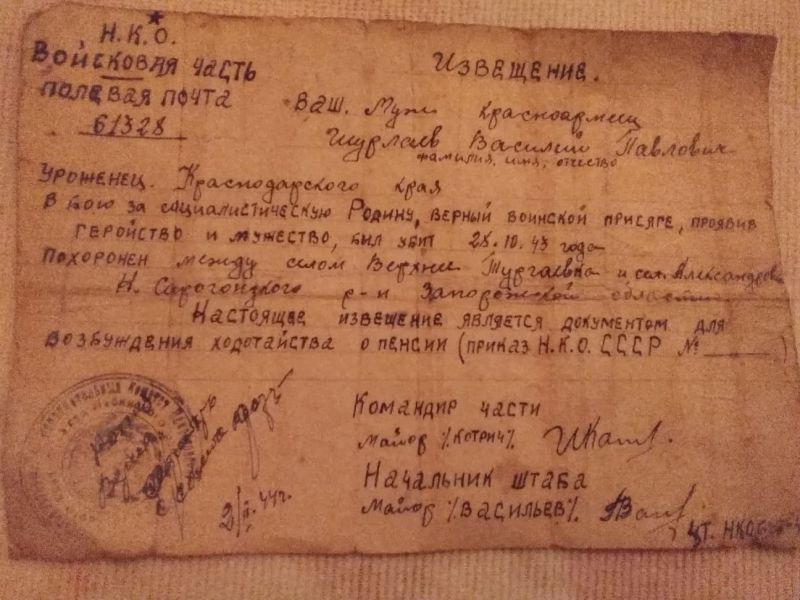 Н.К.О.
ВОЙСКОВАЯ ЧАСТЬ
ПОЛЕВАЯ ПОЧТА
61328
ИЗВЕЩЕНИЕ.
ВАШ. Муж Красноармеец
Василий Павлович
фамилия, имя, отчество
УРОЖЕНЕЦ. Краснодарского края
В БОЮ ЗА СОЦИАЛИСТИЧЕСКУЮ РОДИНУ, ВЕРНЫЙ ВОИНСКОЙ ПРИСЯГЕ, ПРОЯВИВ
ГЕРОЙСТВО И МУЖЕСТВО, БЫЛ УБИТ 28.10.43 года
ПОХОРОНЕН между селом Верхне и сел.
Н. р-н Запорожской области
НАСТОЯЩЕЕ ИЗВЕЩЕНИЕ ЯВЛЯЕТСЯ ДОКУМЕНТОМ ДЛЯ
ВОЗБУЖДЕНИЯ ХОДОТАЙСТВА О ПЕНСИИ (ПРИКАЗ Н.К.О. СССР №)
КОМАНДИР ЧАСТИ
МАЙОР /КОТРИЧ/
НАЧАЛЬНИК ШТАБА
МАЙОР /ВАСИЛЬЕВ/
44г.